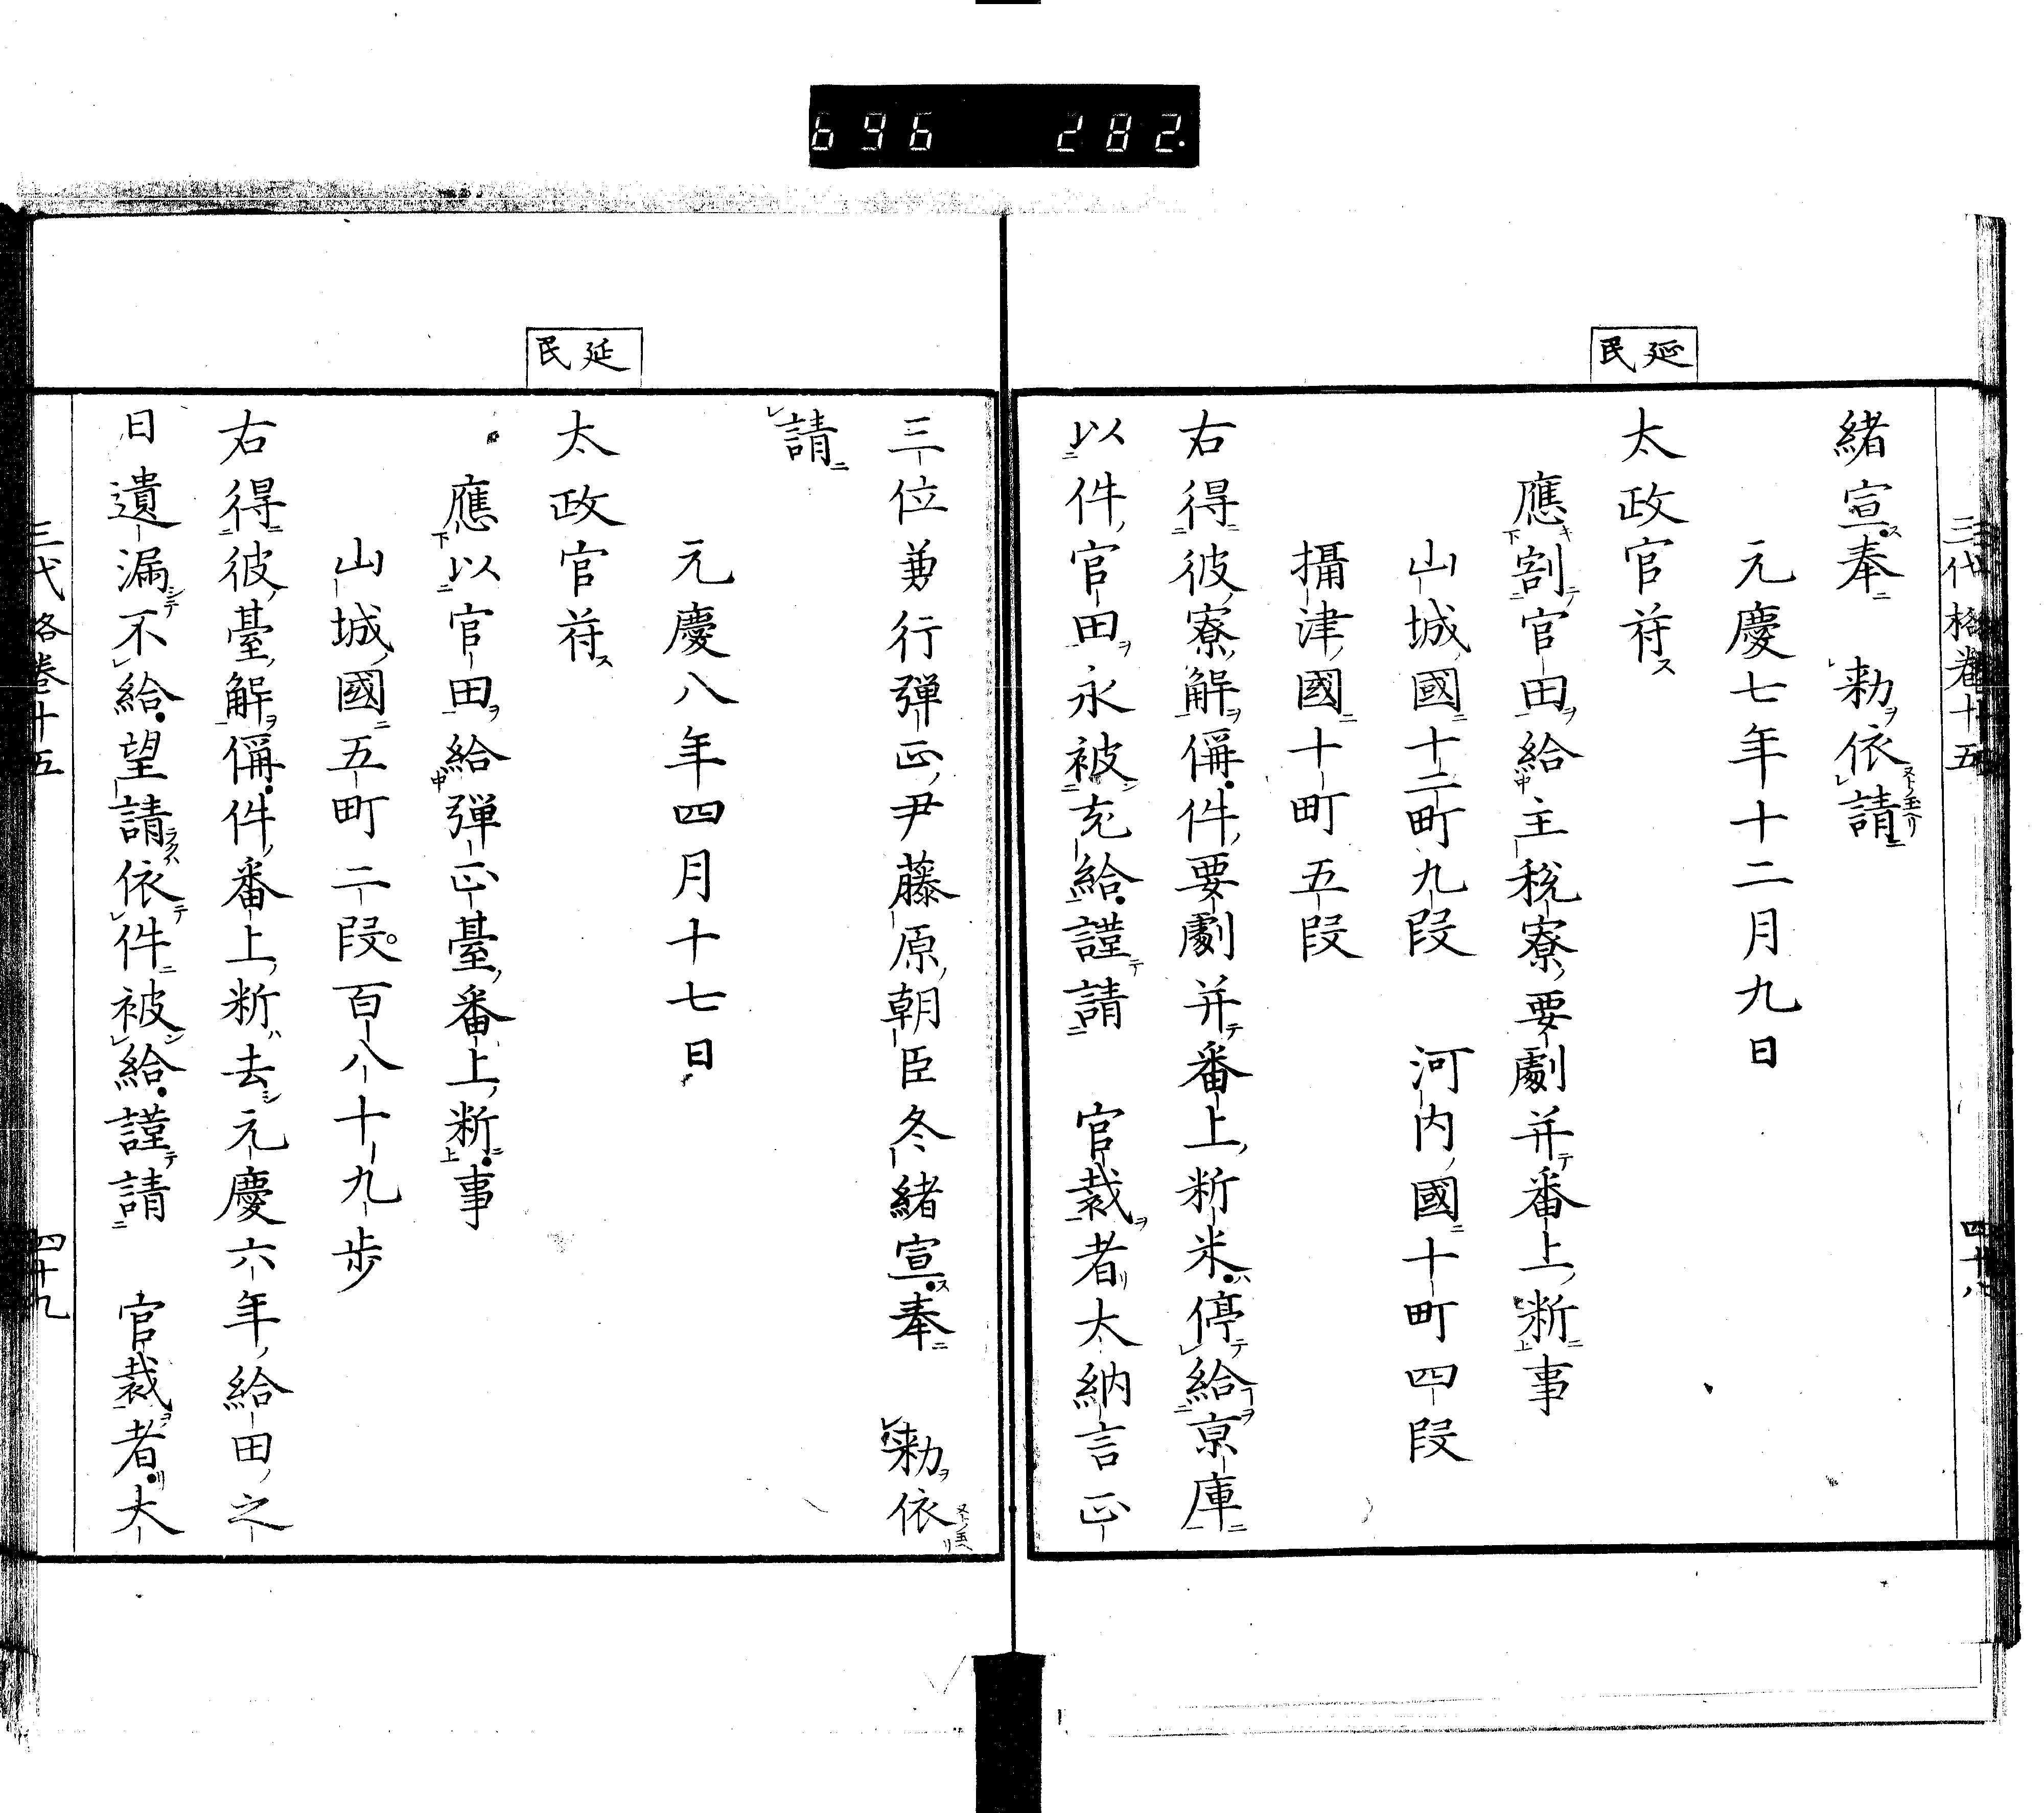 696 282.
三代格卷十五 四十八
延民
緒宣奉 勅依請
元慶七年十二月九日
太政官符
應割官田給主税寮要劇并番上新事
山城國十二町九段 河内國十町四段
攝津國十町五段
右得彼寮解偁件要劇并番上新米停給京庫
以件官田永被充給謹請 官裁者大納言正
三位兼行彈正尹藤原朝臣冬緒宣奉 勅依
請
元慶八年四月十七日
延民
太政官符
應以官田給彈正臺番上新事
山城國五町二段百八十九歩
右得彼臺解偁件番上新去元慶六年給田之
日遺漏不給望請依件被給謹請 官裁者大
三代格卷十五 四十九